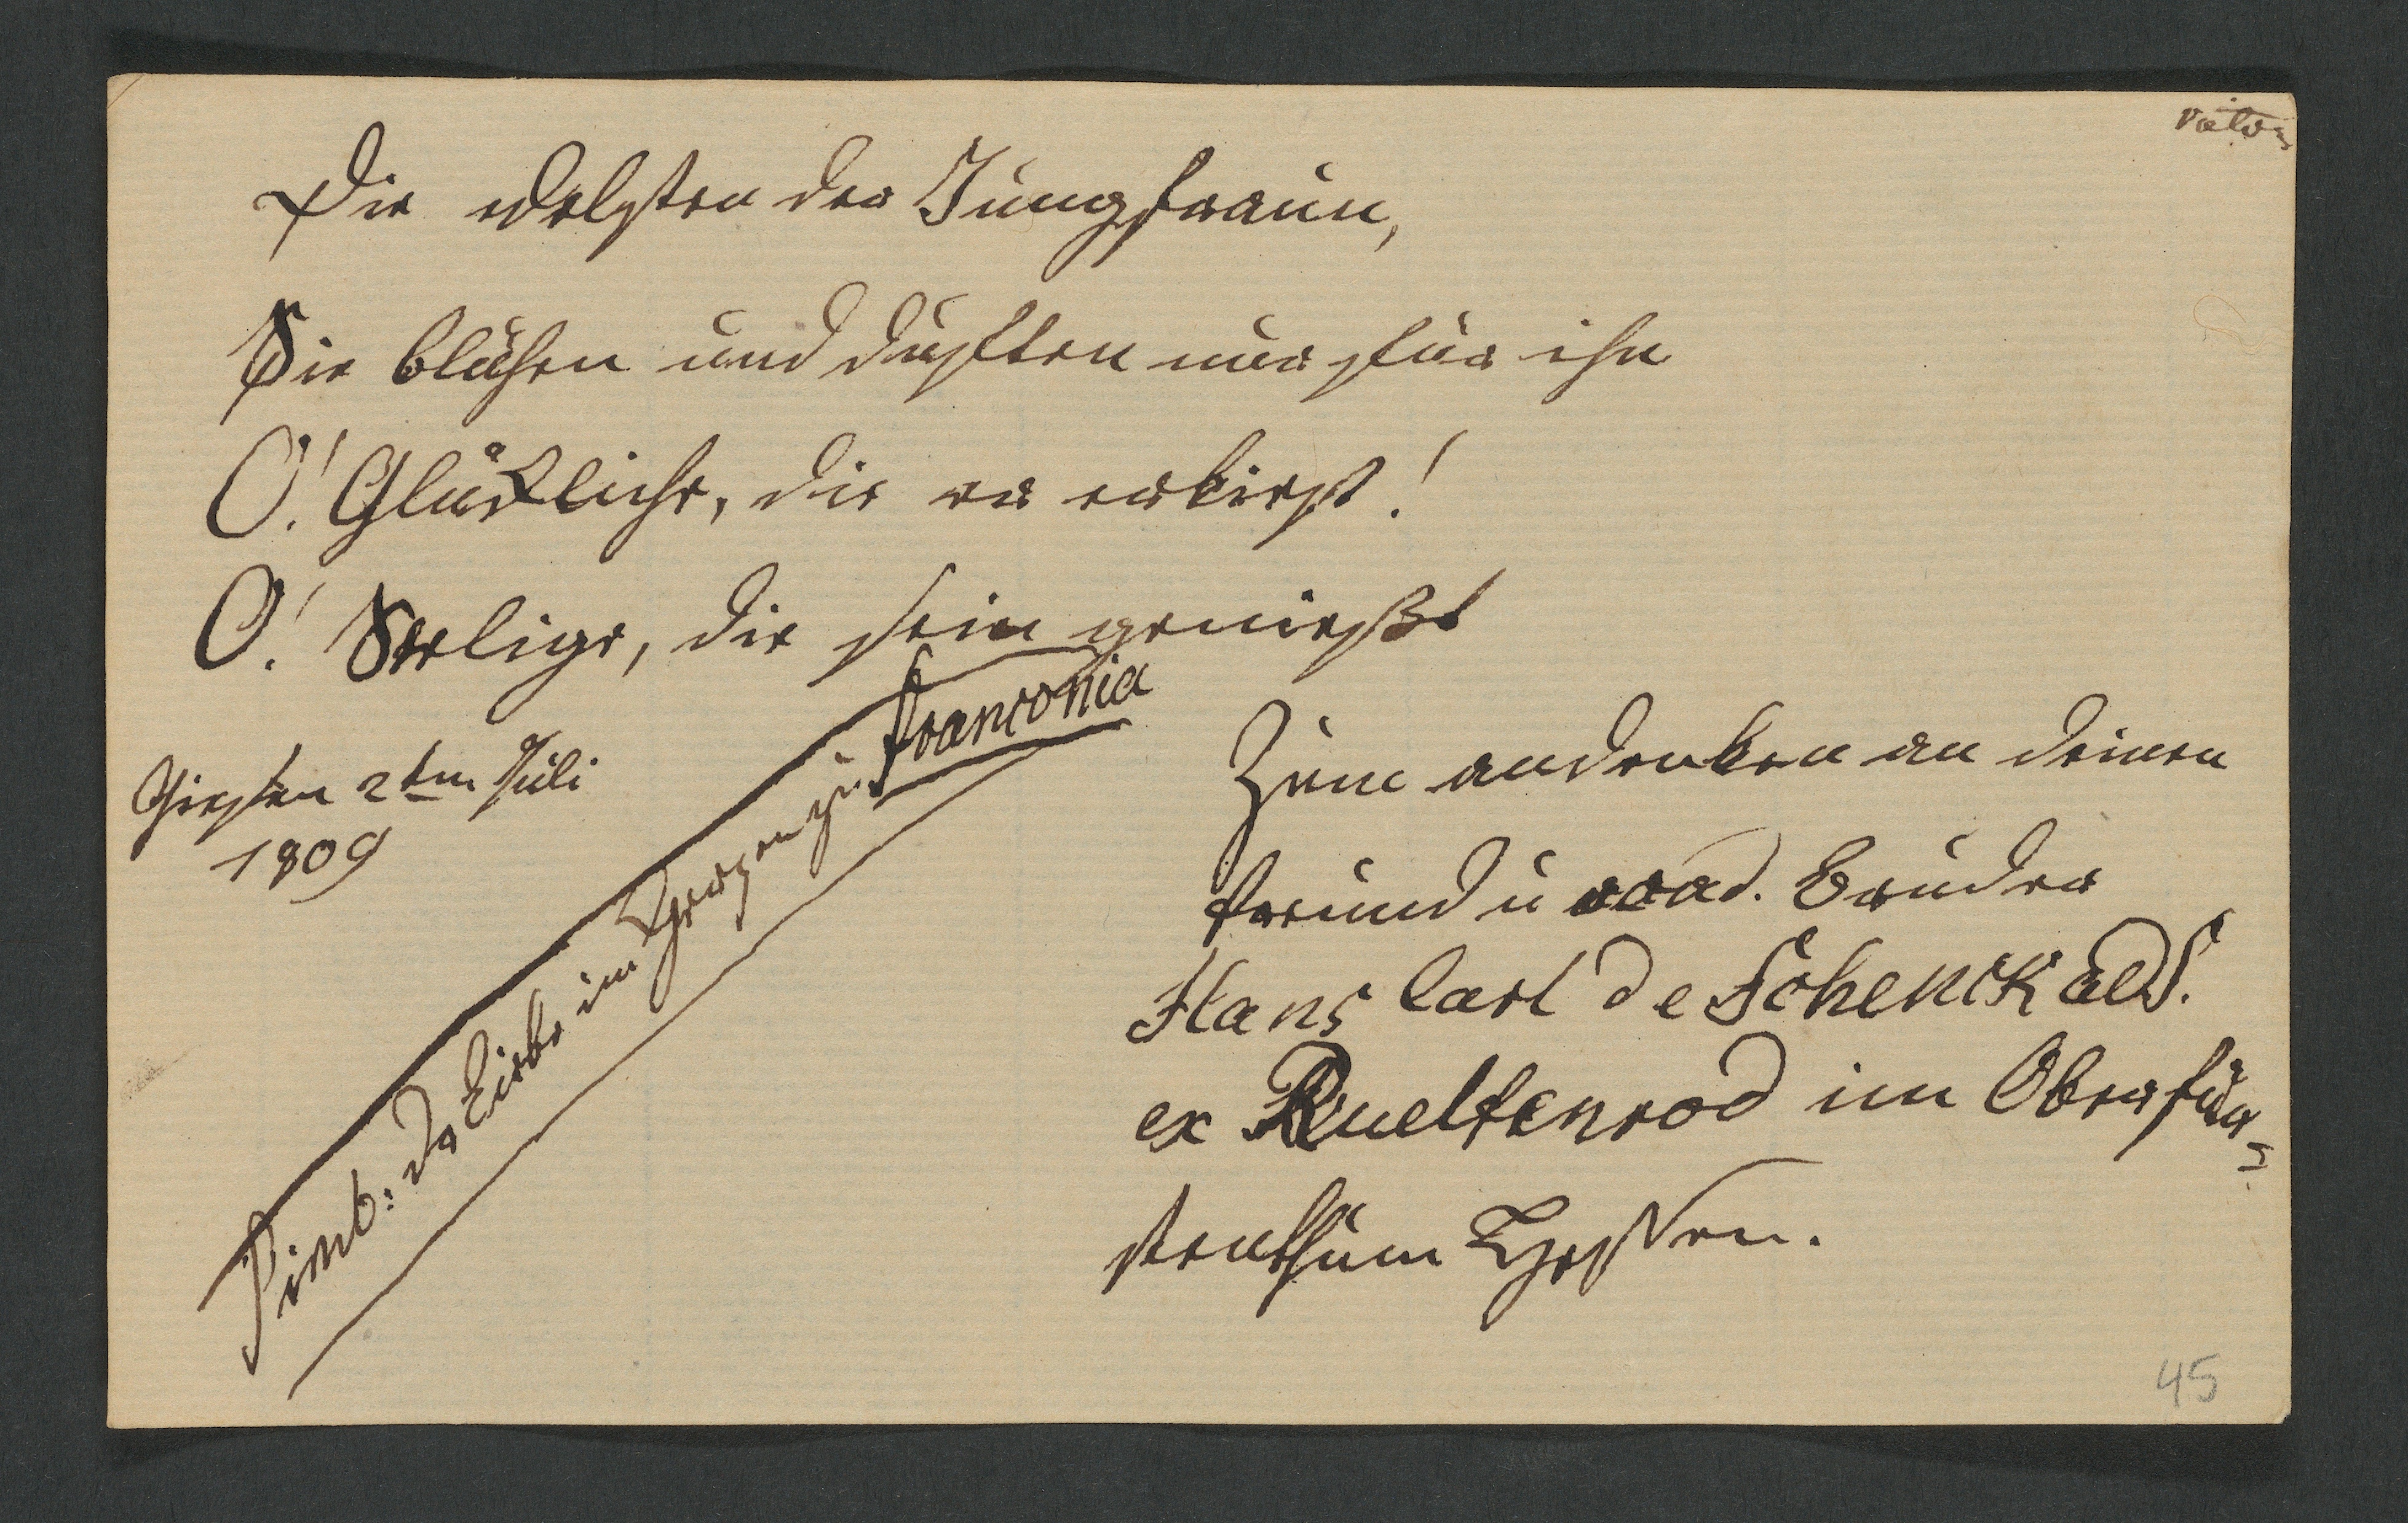 Die edelsten der Jungfraun,
Sie blühen und duften nur für ihn
O! Glückliche, die er erkiest!
O! Seelige, die sein genießt
Giessen 2ten Juli
1809
Simb: Es Liebe im Herzen zu
Franconia
Zum andenken an deinen
freund u acad. Bruder
Hans Carl de Schenck aed.
ex Rueltenrod im Oberfür-
stenthum Hessen.
45